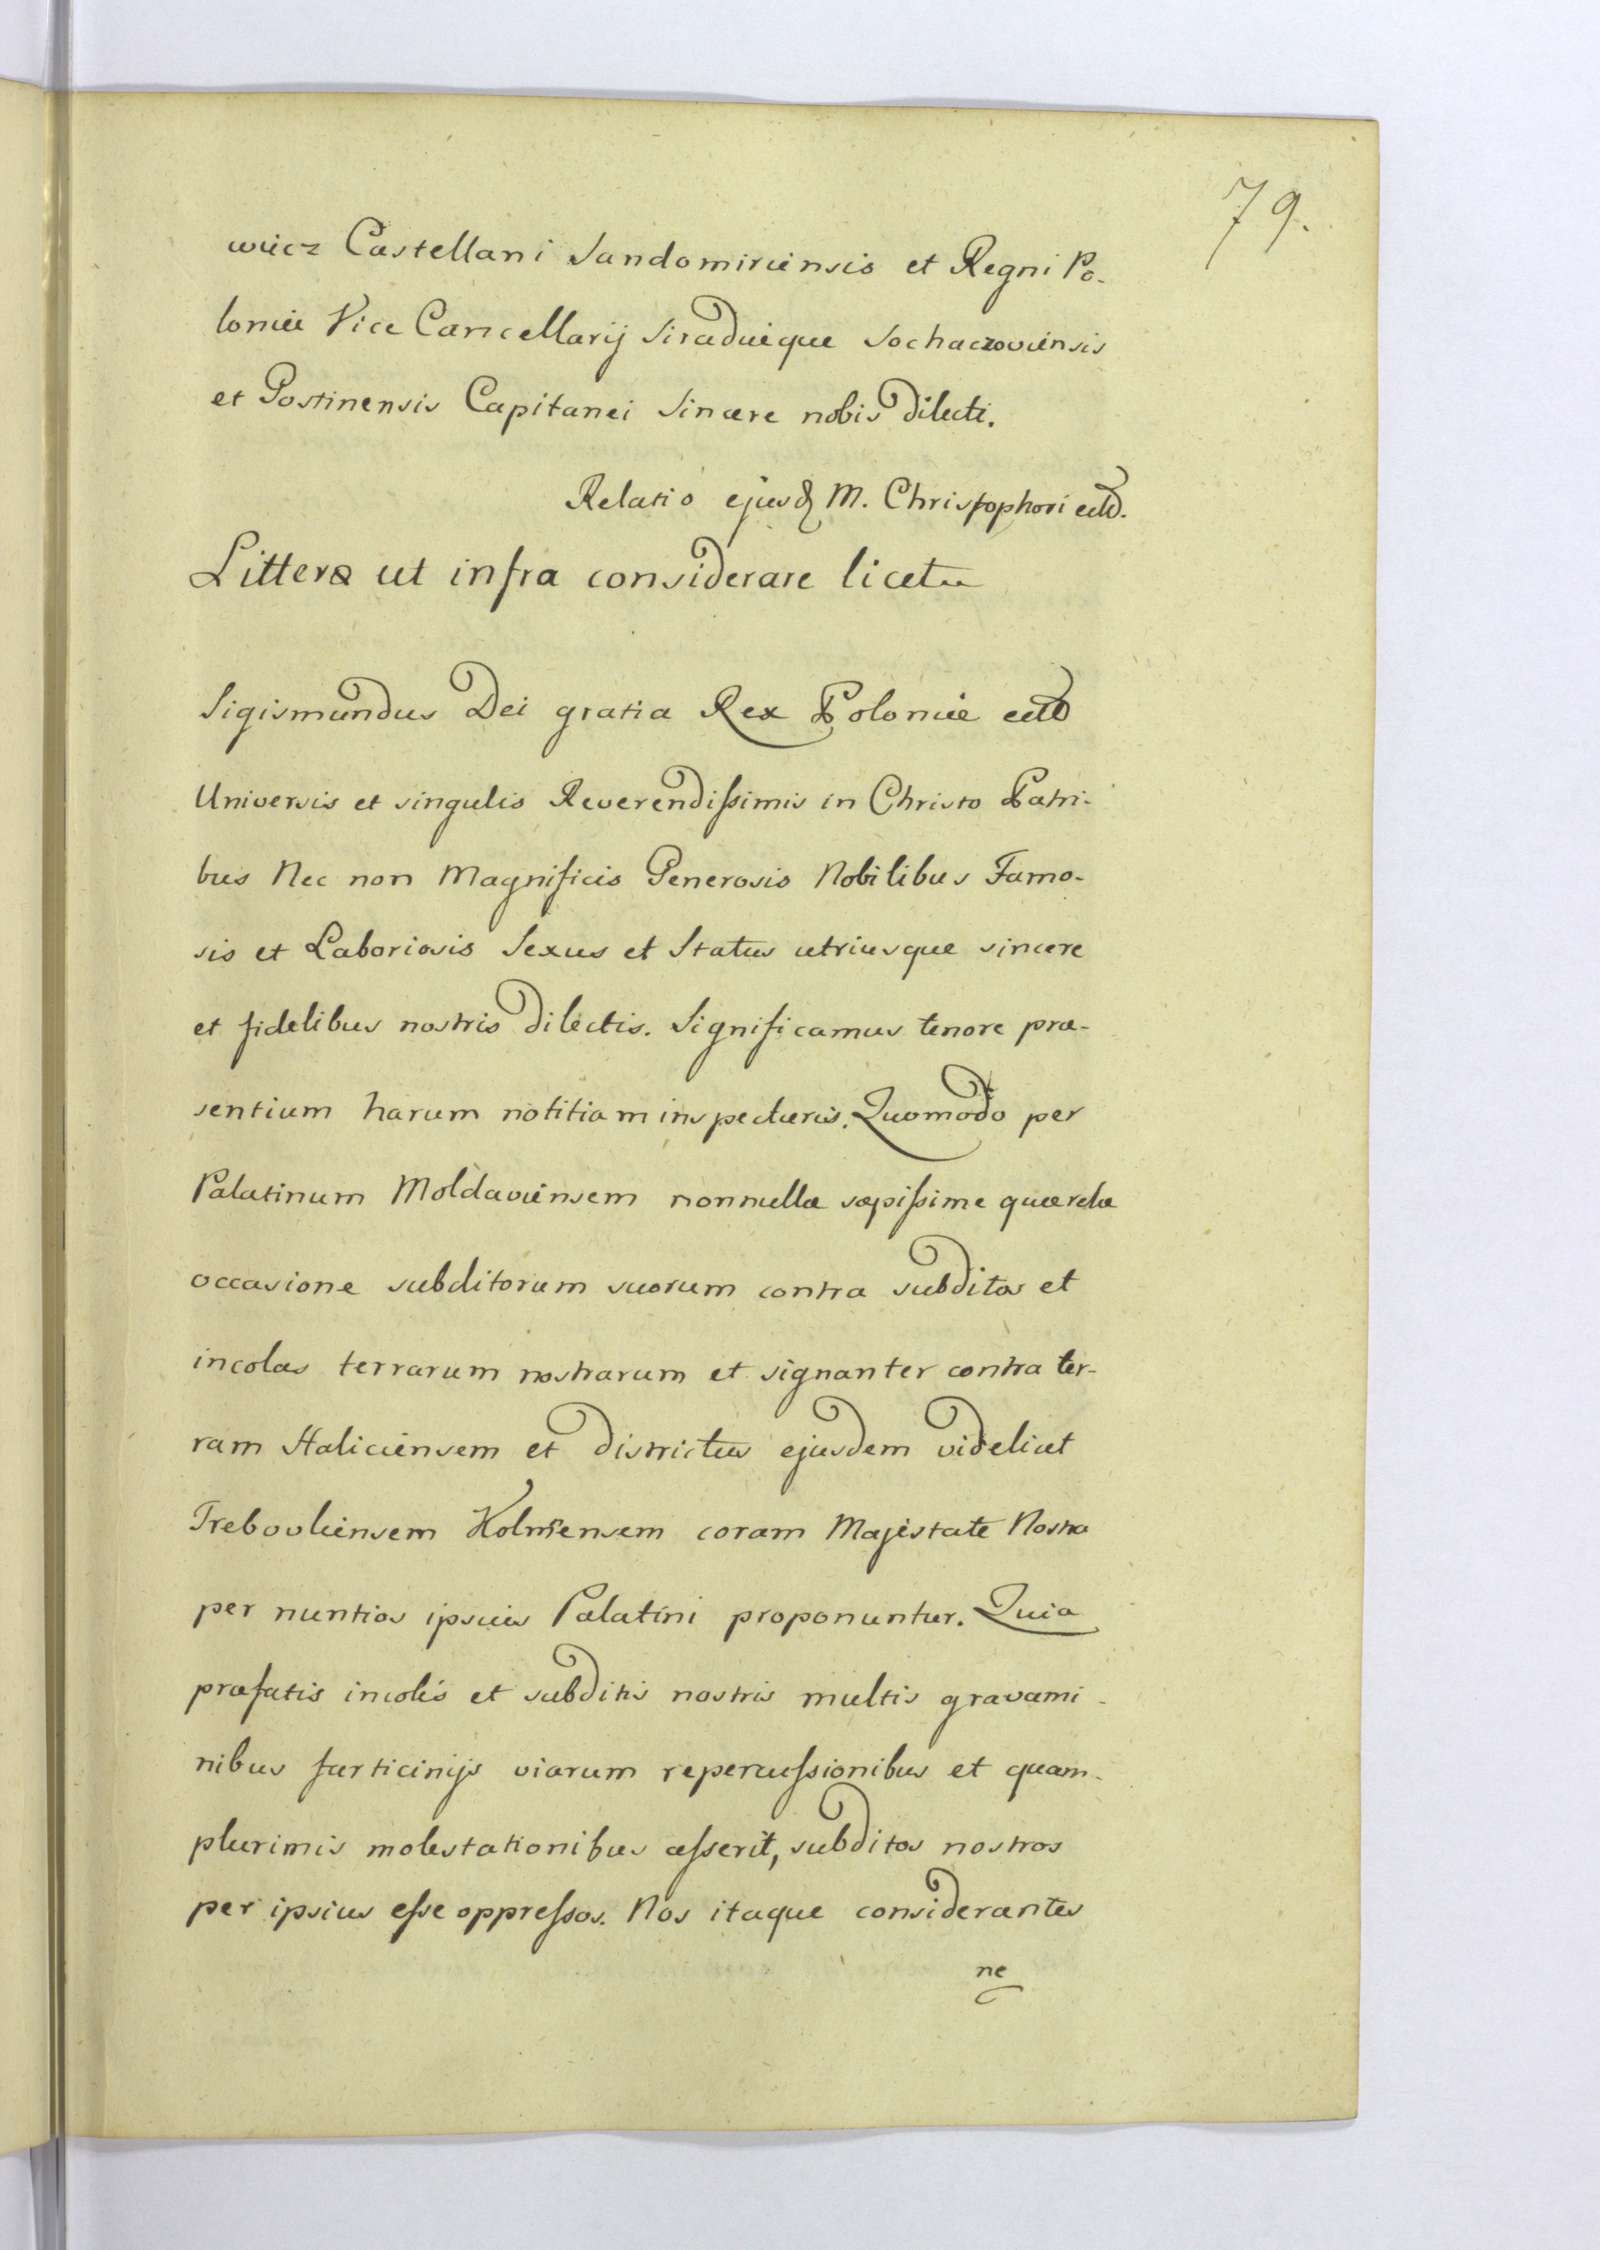 79.
wiicz Castellani Sandomiriensis et Regni Po-
loniæ Vice Cancellarij Siradiæque Sochaczoviensis
et Gostinensis Capitanei Sincere nobis dilecti.
Relatio ejusd M. Christophori
Litteræ ut infra considerare licet
Sigismundus Dei gratia Rex Poloniæ
Universis et singulis Reverendissimis in Christo Patri-
bus Nec non Magnificis Generosis Nobilibus Famo-
sis et Laboriosis Sexus et Status utriusque sincere
et fidelibus nostris dilectis. Significamus tenore præ-
sentium harum notitiam inspecturis. Quomodo per
Palatinum Moldaviensem nonnullæ sæpissime quærelæ
occasione subditorum suorum contra subditos et
incolas terrarum nostrarum et signanter contra ter-
ram Haliciensem et districtus ejusdem videlicet
Trebovliensem Kolmiensem coram Majestate Nostra
per nuntios ipsius Palatini proponuntur. Quia
præfatis incolis et subditis nostris multis gravami-
nibus furticinijs viarum repercussionibus et quam-
plurimis molestationibus asserit, subditos nostros
per ipsius esse oppressos. Nos itaque considerantes
ne